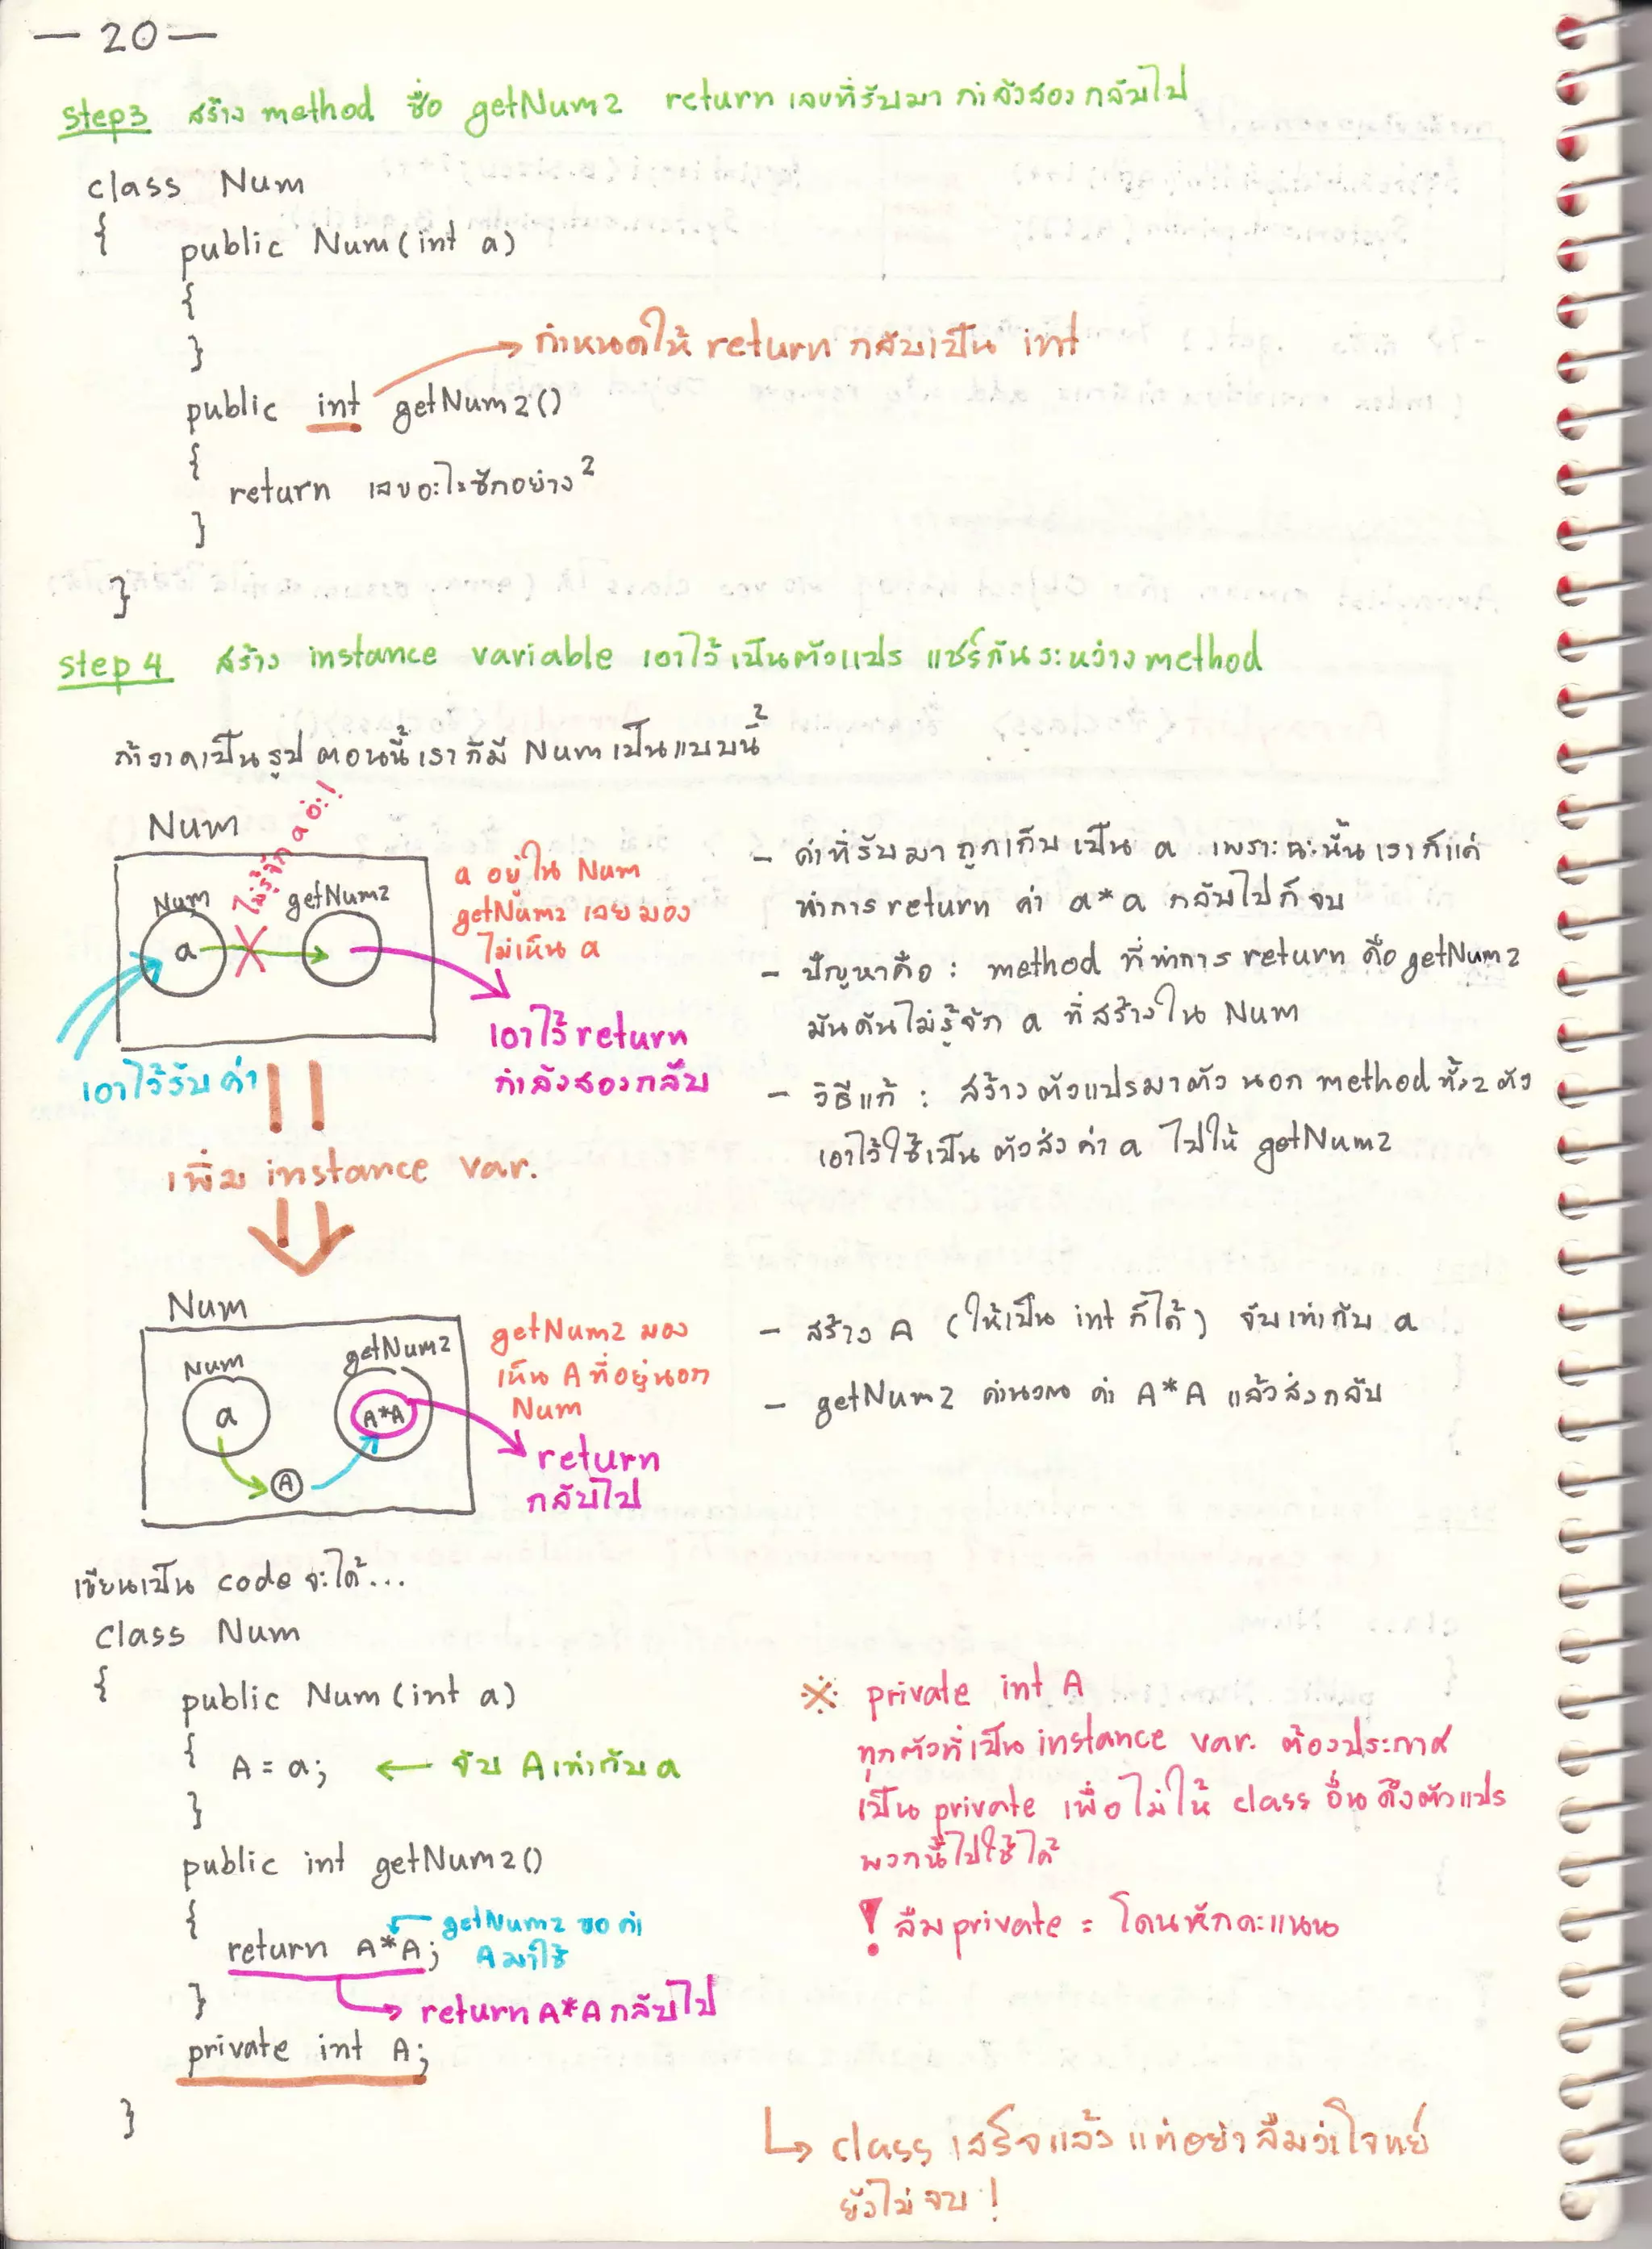 — 20 —
step3 สร้าง method ชื่อ getNum2 return เลขที่รับมา กำลังสองกลับไป
class Num
{ public Num(int a)
{
}
กำหนดให้ return กลับเป็น int
public int getNum2()
{
return เลขอะไรซักอย่าง²
}
}
step 4 สร้าง instance variable เอาไว้เป็นตัวแปร แชร์กันระหว่าง method
ถ้าวาดเป็นรูป ตอนนี้เราก็มี Num เป็นแบบนี้
Num
ไม่รู้จัก a อ่ะ!
Num getNum2
a
a อยู่ใน Num
getNum2 เลยมอง
ไม่เห็น a
เอาไว้ return
กำลังสองกลับ
เอาไว้รับค่า
- ค่าที่รับมาถูกเก็บเป็น a เพราะฉะนั้นเราก็แค่
ทำการ return ค่า a*a กลับไปก็จบ
- ปัญหาคือ : method ที่ทำการ return คือ getNum2
มันดันไม่รู้จัก a ที่สร้างใน Num
- วิธีแก้ : สร้างตัวแปรมาตัว นอก method ทั้ง 2 ตัว
เอาไว้ใช้เป็นตัวส่งค่า a ไปให้ getNum2
เพิ่ม instance var.
Num
Num getNum2
a A*A
A
getNum2 มอง
เห็น A ที่อยู่นอก
Num
return
กลับไป
- สร้าง A (ให้เป็น int ก็ได้) จับเท่ากับ a
- getNum2 คำนวณ ค่า A*A แล้วส่งกลับ
เขียนเป็น code จะได้...
class Num
{ public Num(int a)
{ A = a; ← จับ A เท่ากับ a
}
public int getNum2()
{
return A*A; getNum2 ขอค่า
A มาใช้
}
return A*A กลับไป
private int A;
}
※ private int A
ทุกตัวที่เป็น instance var. ต้องประกาศ
เป็น private เพื่อไม่ให้ class อื่นดึงตัวแปร
พวกนี้ไปใช้ได้
! ลืม private = โดนหักคะแนน
↳ class เสร็จแล้ว แต่อย่าลืมว่าโจทย์
ยังไม่จบ !